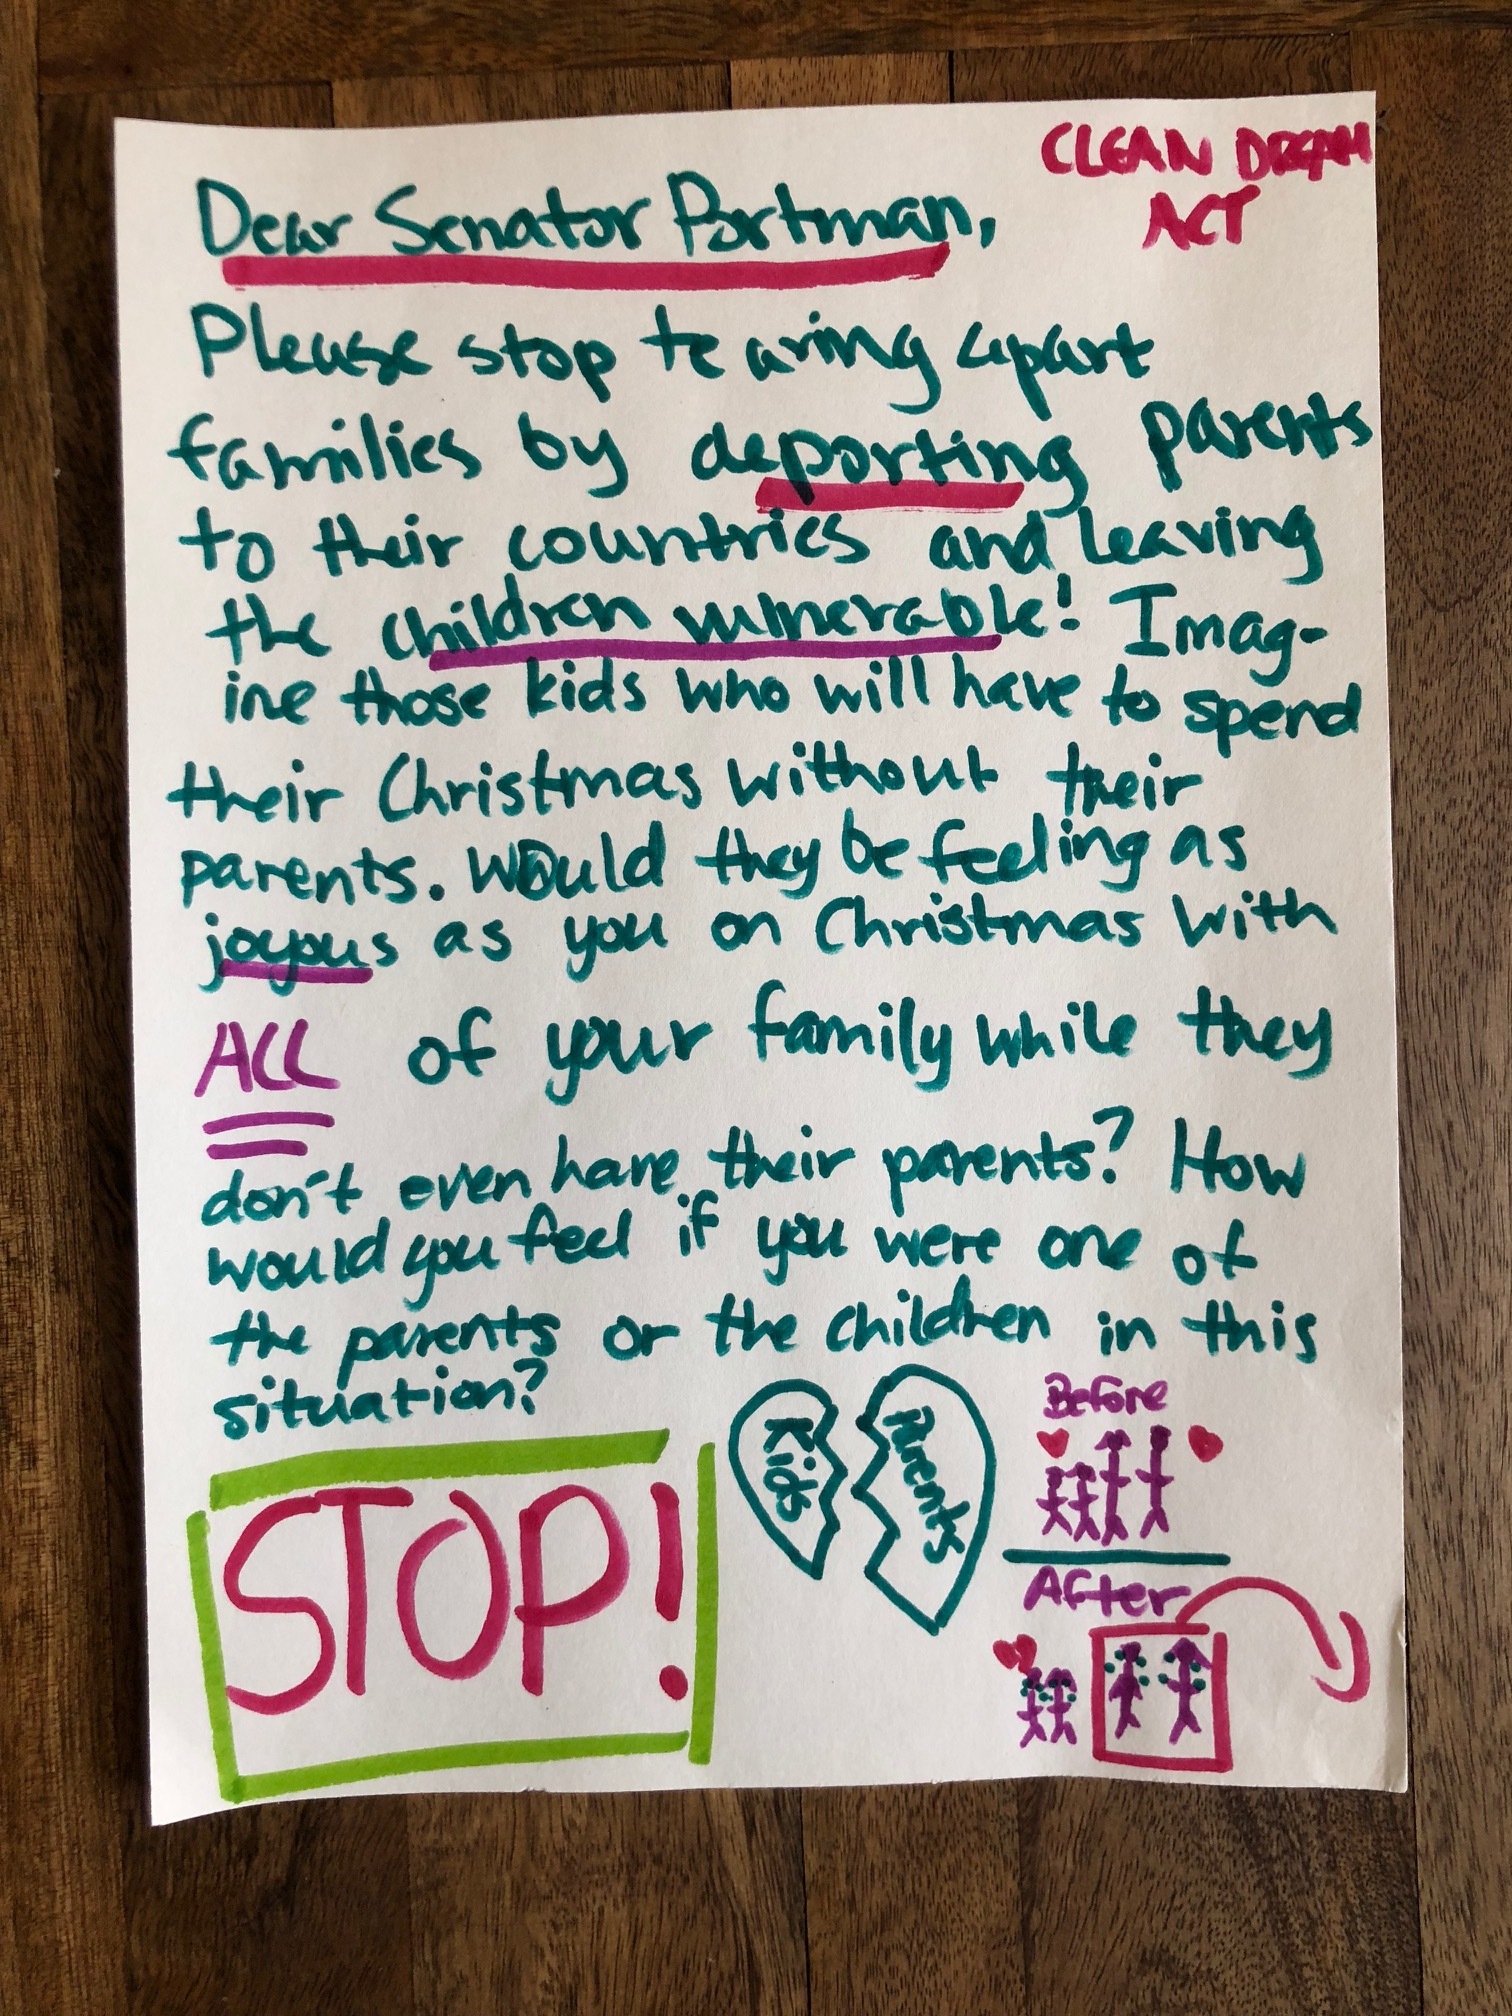 CLEAN DREAM
ACT
Dear Senator Portman,
Please stop tearing apart
families by deporting parents
to their countries and leaving
the children vulnerable! Imag-
ine those kids who will have to spend
their Christmas without their
parents. Would they be feeling as
joyous as you on Christmas with
ALL of your family while they
don't even have their parents? How
would you feel if you were one of
the parents or the children in this
situation?
STOP!
Kids
Parents
Before
After